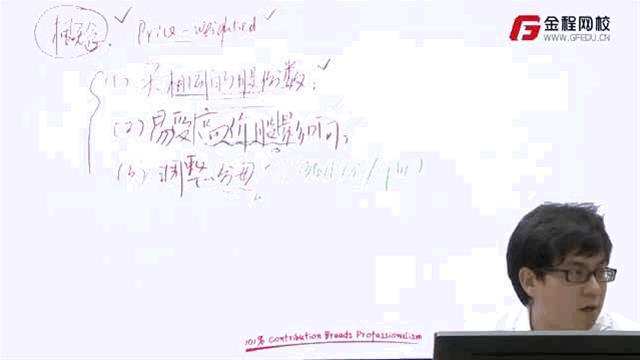 概念. Price-weighted
金程网校
WWW.GFEDU.CN
(1) 买相同的股份数;
(2) 易受高价股影响;
(3) 调整分母
101% Contribution Breeds Professionalism